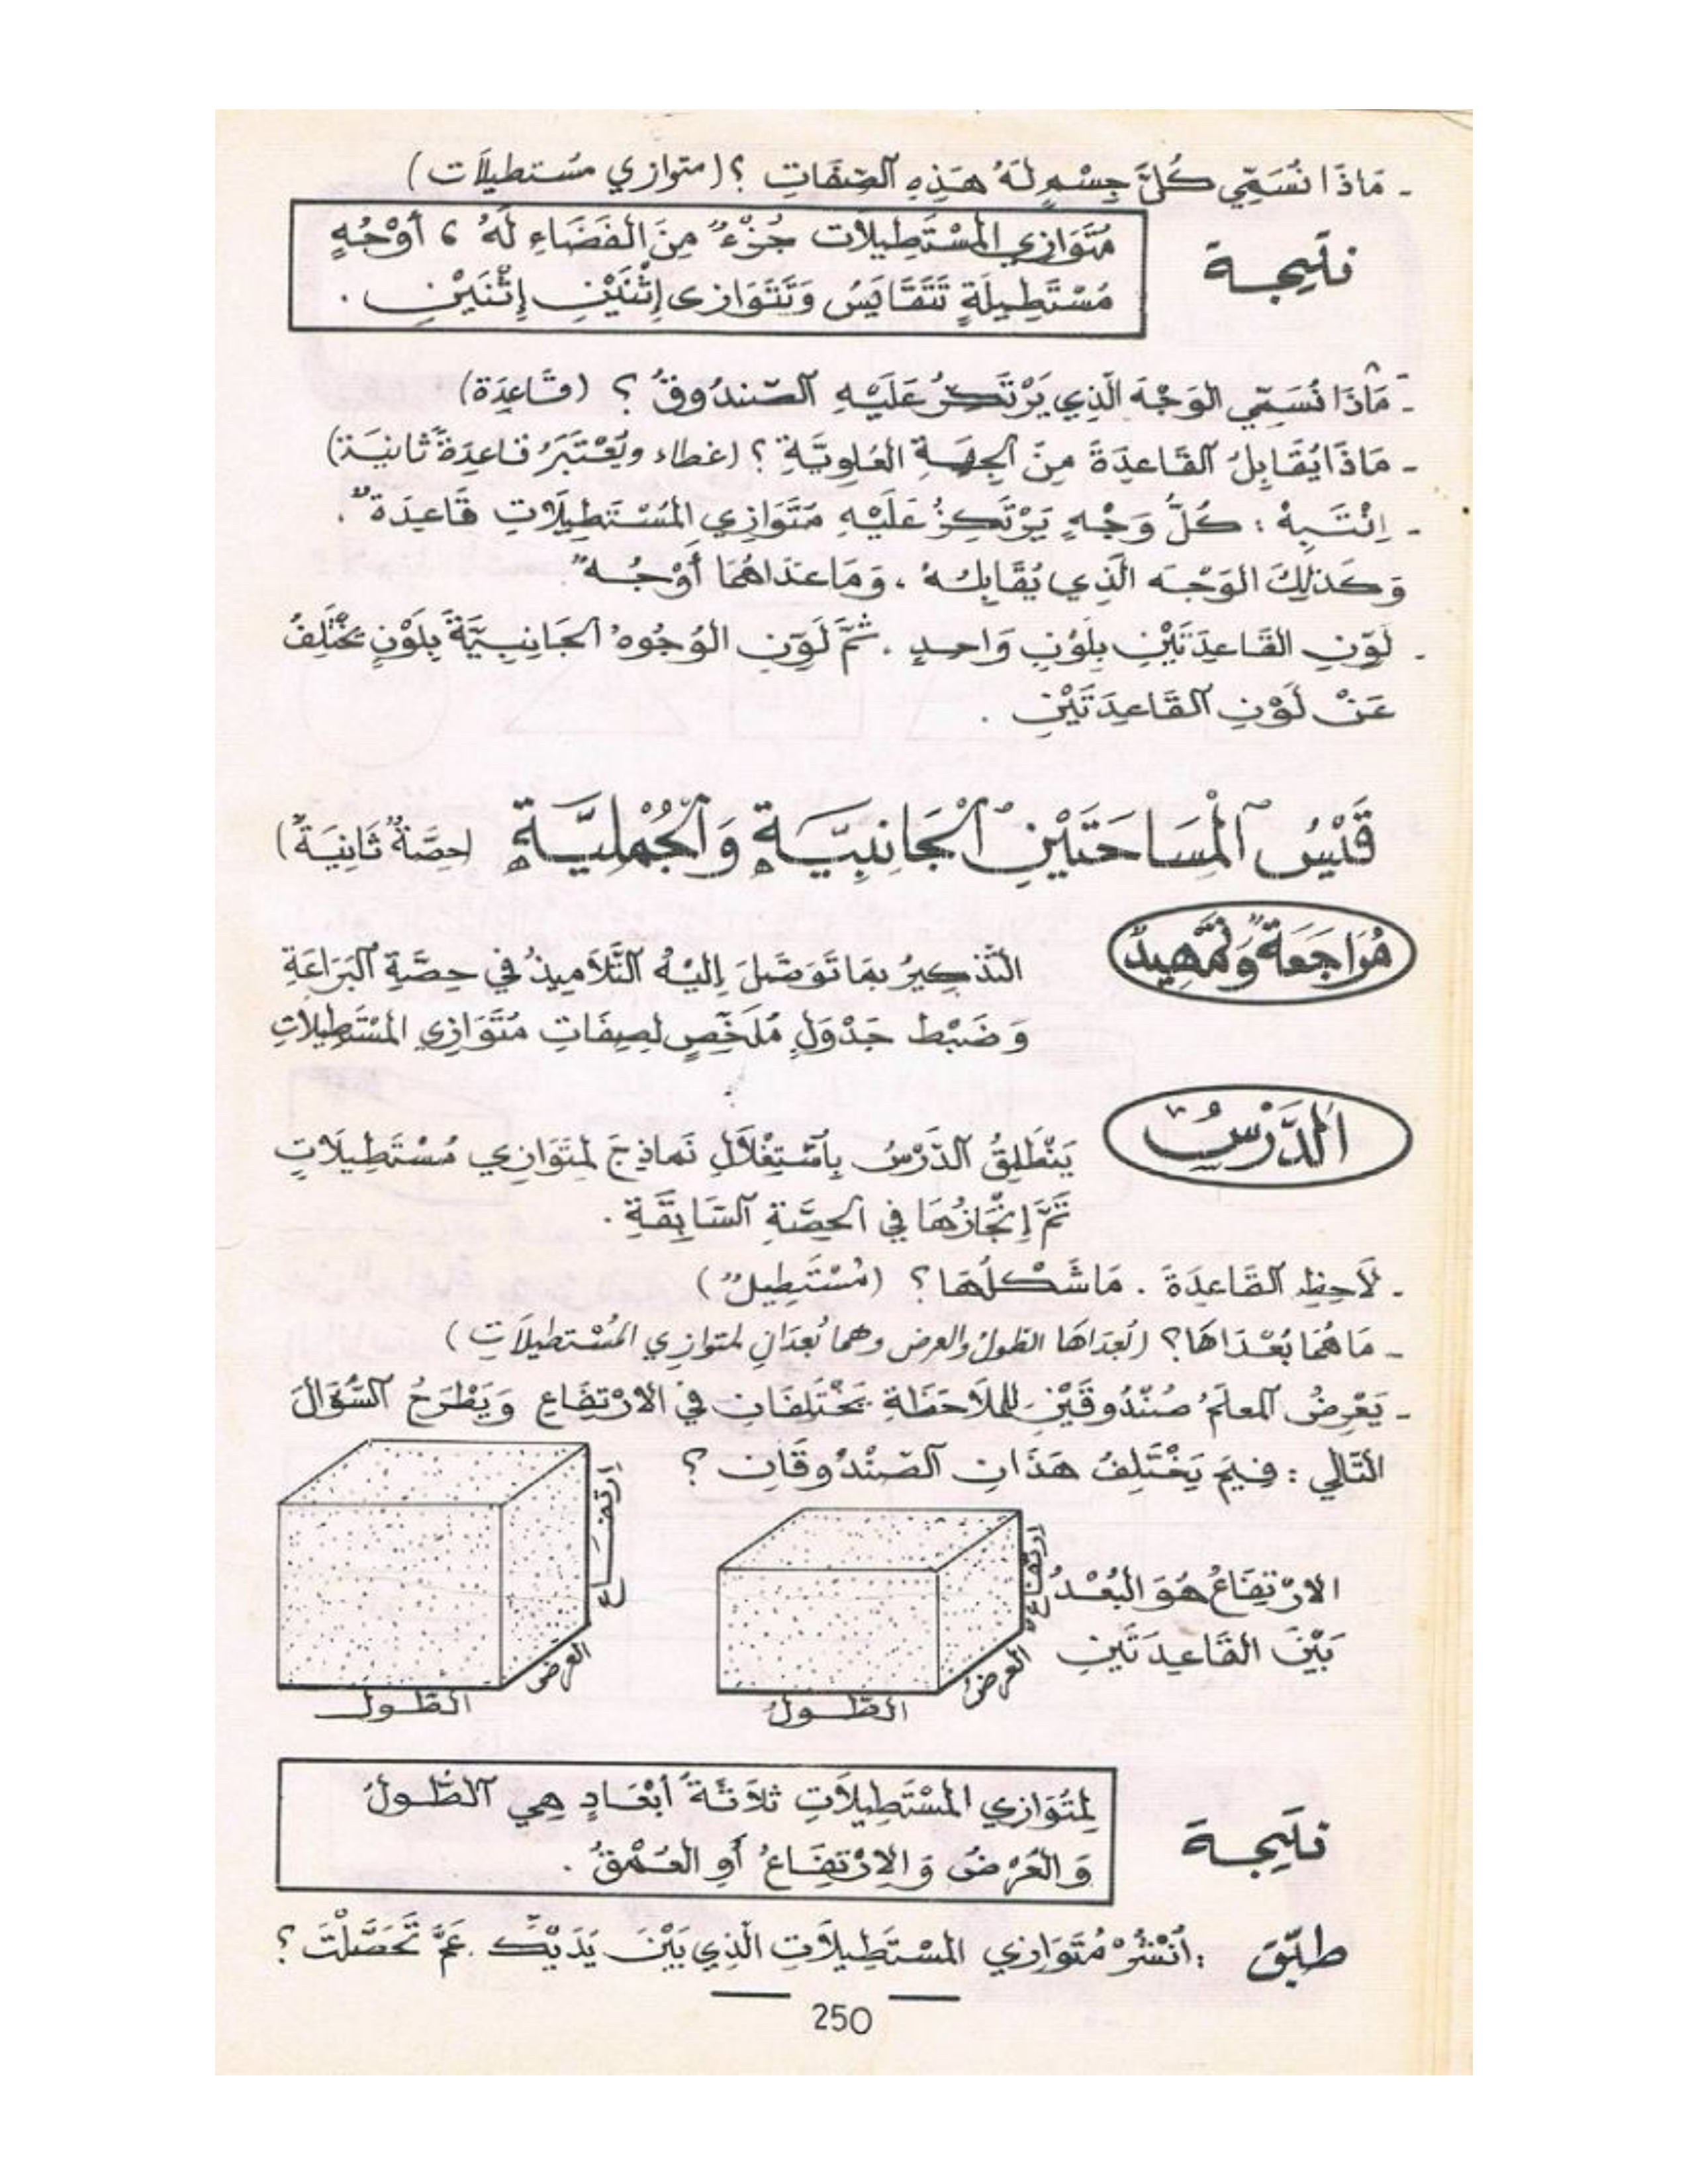 - مَاذَا نُسَمِّي كُلَّ جِسْمٍ لَهُ هَذِهِ الصِّفَاتِ ؟ (متوازي مُستطيلاَت)
نتيجة
مُتَوَازِي المُسْتَطِيلاَت جُزْءٌ مِنَ الفَضَاءِ لَهُ 6 أَوْجُهٍ
مُسْتَطِيلَةٍ تَتَقَايَسُ وَتَتَوَازَى إِثْنَيْنِ إِثْنَيْنِ .
- مَاذَا نُسَمِّي الوَجْهَ الَّذِي يَرْتَكِزُ عَلَيْهِ الصّندُوقُ ؟ (قَاعِدَة)
- مَاذَا يُقَابِلُ القَاعِدَةَ مِنَ الجِهَةِ العُلوِيَّةِ ؟ (غطاء ويُعْتَبَرُ قاعِدَةً ثانيَة)
- اِنْتَبِهْ : كُلُّ وَجْهٍ يَرْتَكِزُ عَلَيْهِ مُتَوَازِي المُسْتَطِيلاَتِ قَاعِدَةٌ .
وَكَذلِكَ الوَجْه الَّذِي يُقَابِلهُ ، وَمَا عَدَاهُمَا أَوْجُهٌ
- لَوِّنِ القَاعِدَتَيْنِ بِلَوْنٍ وَاحِدٍ . ثُمَّ لَوِّنِ الوُجُوهَ الجَانِبِيَّةَ بِلَوْنٍ يَخْتَلِفُ
عَنْ لَوْنِ القَاعِدَتَيْنِ .
قَيْسُ الْمِسَاحَتَيْنِ الْجَانِبِيَّةِ وَالْجُمْلِيَّةِ (حِصَّةٌ ثَانِيَةٌ)
مُرَاجَعَةٌ وَتَمْهِيدٌ
التَّذكِيرُ بِمَا تَوَصَّلَ إِلَيْهِ التَّلاَمِيذُ فِي حِصَّةِ البَرَاعَةِ
وَضَبْط جَدْوَلٍ مُلَخِّصٍ لِصِفَاتِ مُتَوَازِي المُسْتَطِيلاَتِ
الدَّرْسُ
يَنْطَلِقُ الدَّرْسُ بِاسْتِغْلاَلِ نَمَاذِجَ لِمُتَوَازِي مُسْتَطِيلاَتٍ
تَمَّ إِنْجَازُهَا فِي الحِصَّةِ السَّابِقَةِ .
- لاَحِظِ القَاعِدَةَ . مَا شَكْلُهَا ؟ (مُسْتَطِيلٌ)
- مَا هُمَا بُعْدَاهَا ؟ (بُعدَاهَا الطّولُ والعرض وهما بُعدَانِ لمتوازي المُسْتطيلاَتِ)
- يَعْرِضُ المعلّمُ صُنْدُوقَيْنِ لِلملاَحَظَةِ يَخْتَلِفَانِ فِي الارْتِفَاعِ وَيَطْرَحُ السُّؤَالَ
التَّالِي : فِيمَ يَخْتَلِفُ هَذَانِ الصّنْدُوقَانِ ؟
الارْتِفَاعُ هُوَ البُعْدُ
بَيْنَ القَاعِدَتَيْنِ
ارتفاع
العرض
الطّولُ
ارتفاع
العرض
الطّول
نتيجة
لِمُتَوَازِي المُسْتَطِيلاَتِ ثَلاَثَةُ أَبْعَادٍ هِي الطُّولُ
وَالعُرْضُ وَالاِرْتِفَاعُ أَوِ العُمْقُ .
طبّق : أُنْشُرْ مُتَوَازِي المُسْتَطِيلاَتِ الَّذِي بَيْنَ يَدَيْكَ . عَمَّ تَحَصَّلْتَ ؟
250